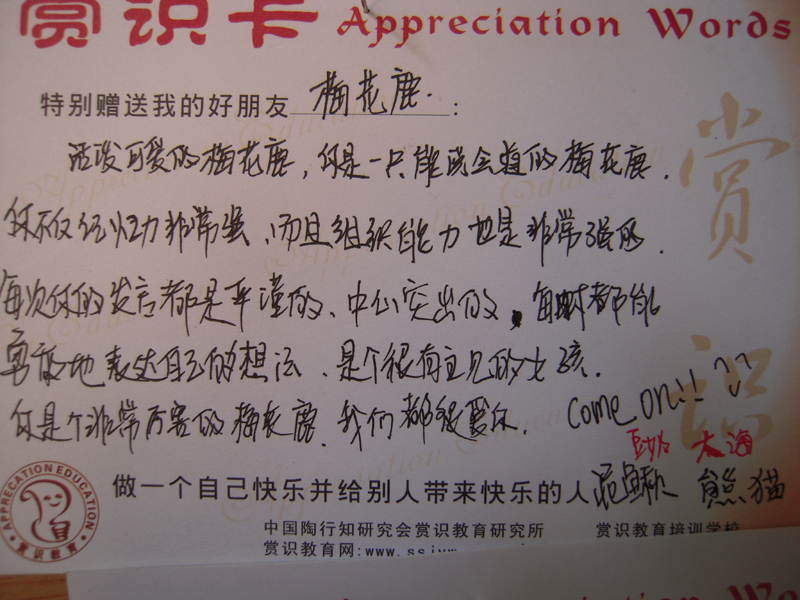 赏识卡 Appreciation Words
特别赠送我的好朋友 梅花鹿.:
活泼可爱的梅花鹿,你是一只能说会道的梅花鹿.
你不仅记忆力非常强、而且组织能力也是非常强的.
每次你的发言都是严谨的、中心突出的,每时都能
勇敢地表达自己的想法、是个很有主见的女孩.
你是个非常厉害的梅花鹿.我们都很爱你. Come on!!
赏识
大海
做一个自己快乐并给别人带来快乐的人 泥鳅 熊猫
APPRECATION EDUCATION
赏识教育
中国陶行知研究会赏识教育研究所 赏识教育培训学校
赏识教育网:www.